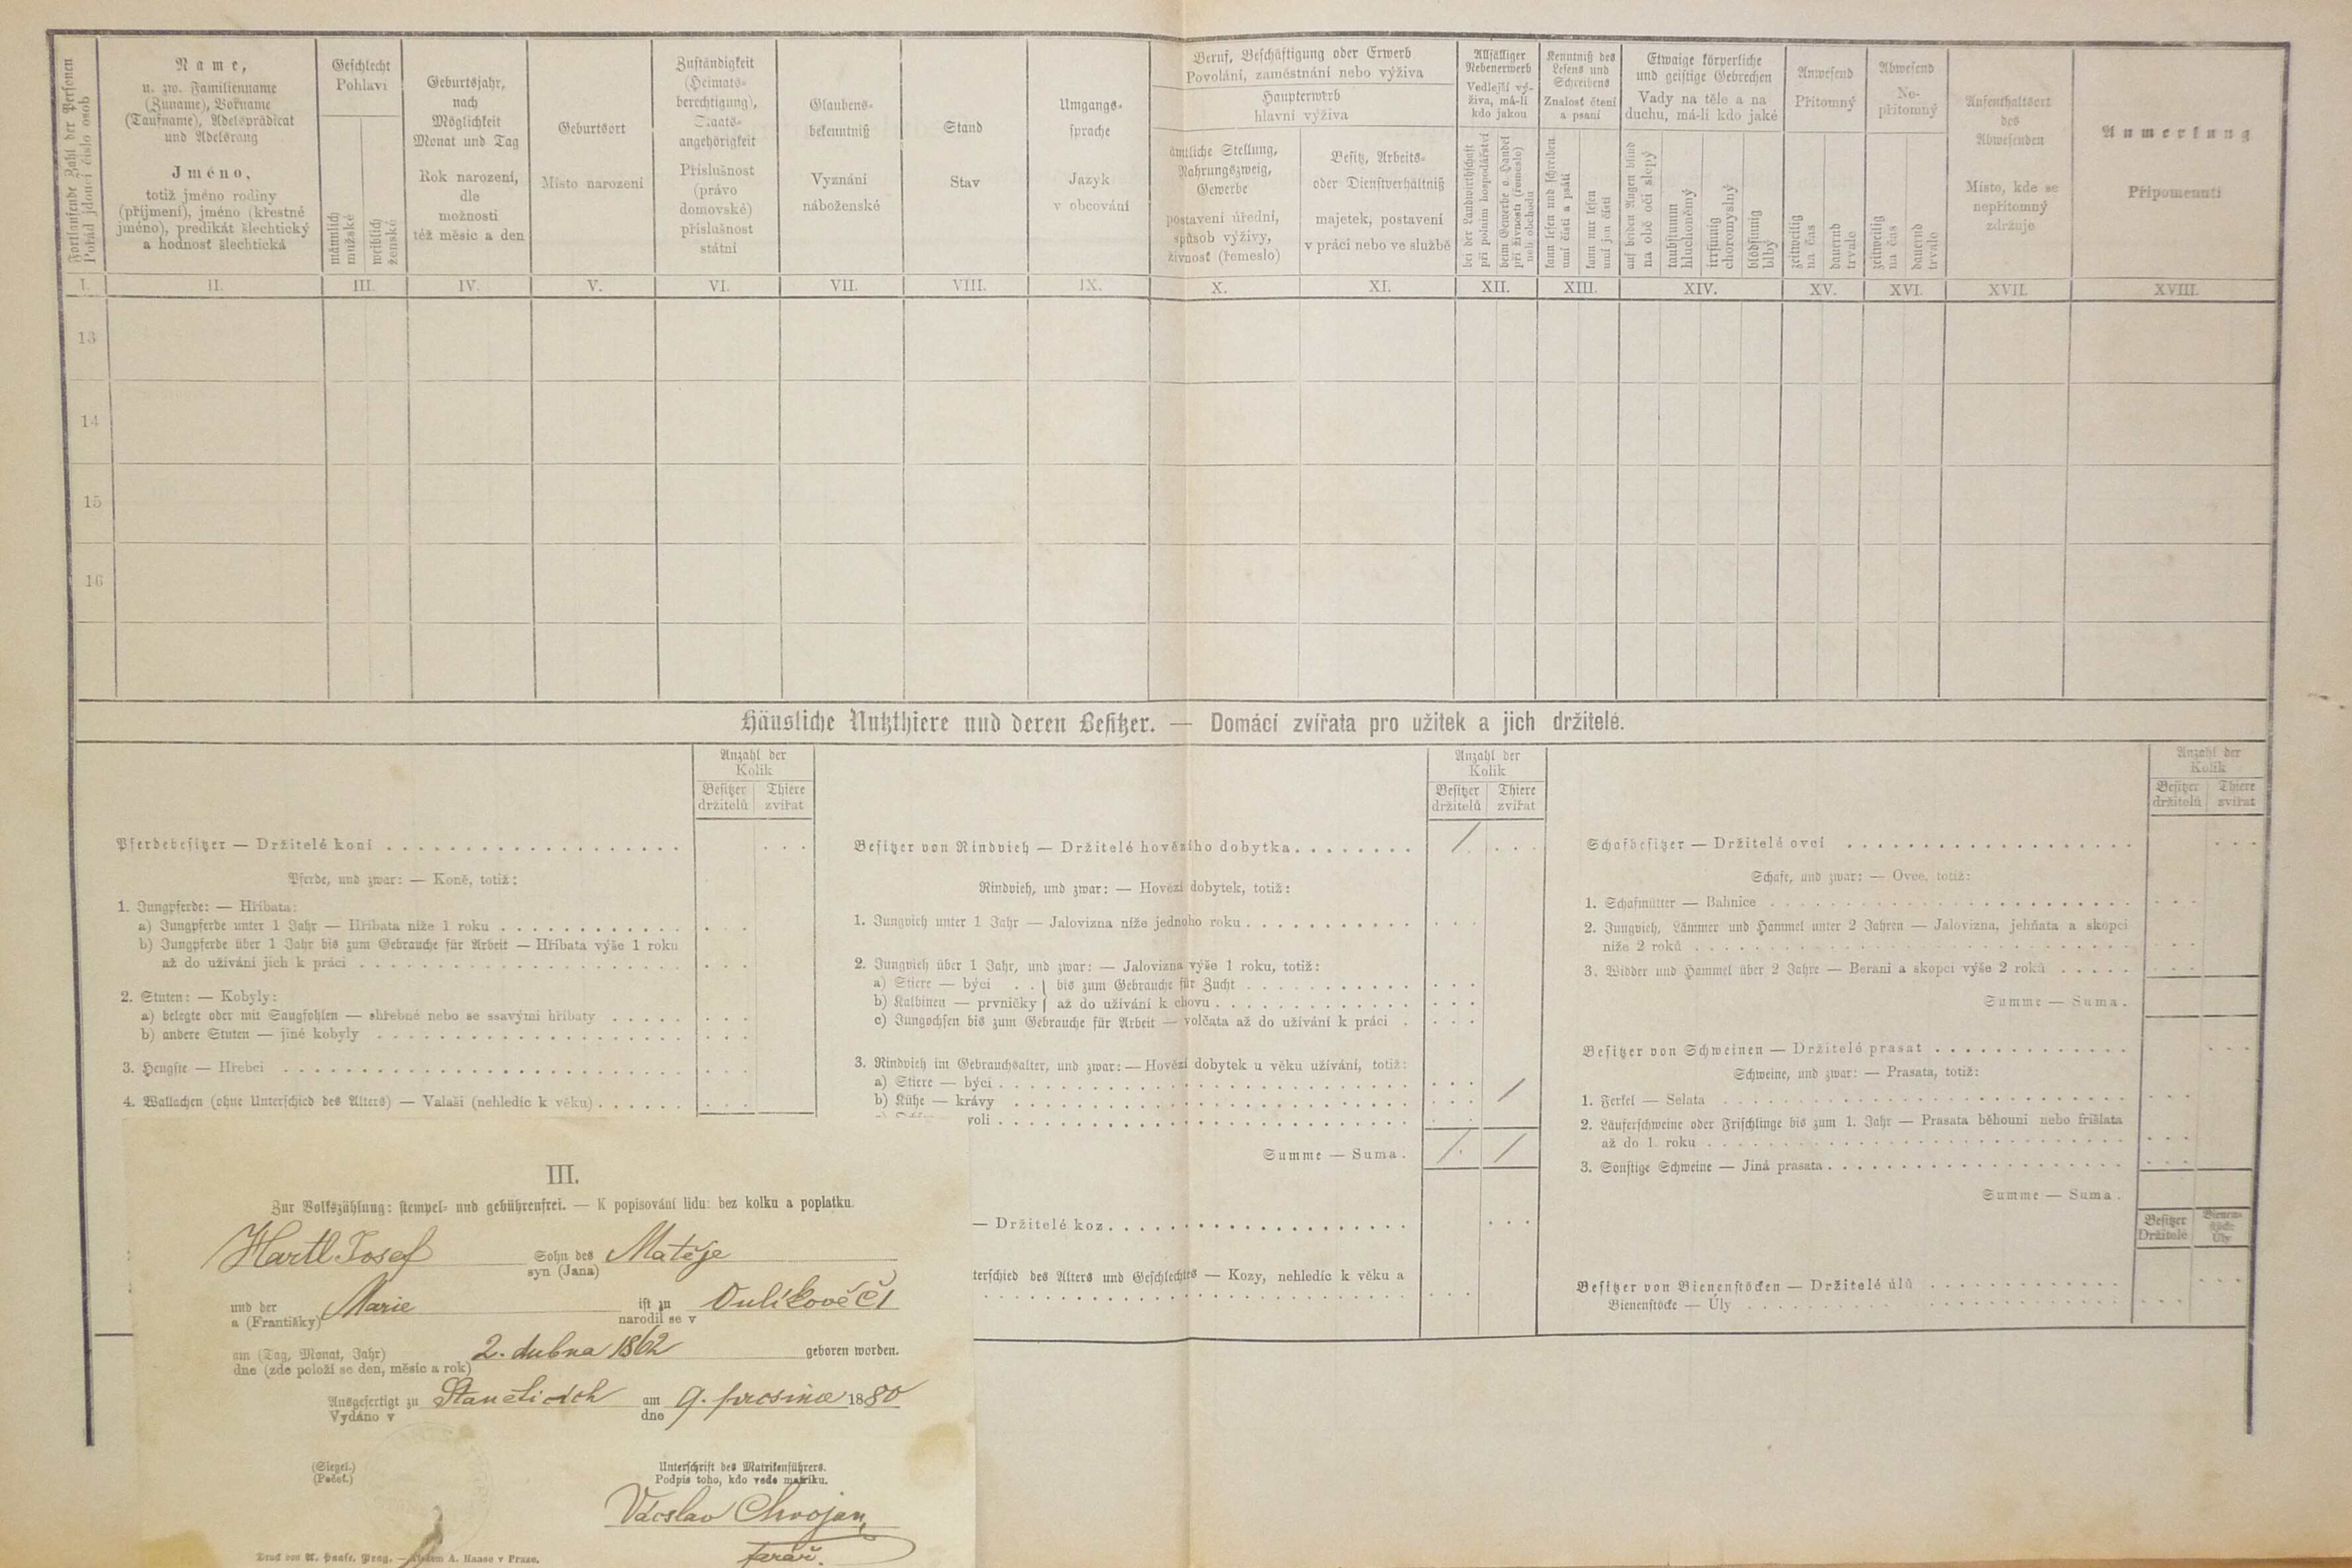 Fortlaufende Zahl der Personen
Pořád jdoucí číslo osob
Name,
u. zw. Familienname
(Zuname), Vorname
(Taufname), Adelsprädicat
und Adelsrang
Jméno,
totiž jméno rodiny
(příjmení), jméno (křestné
jméno), predikát šlechtický
a hodnosť šlechtická
Geschlecht
Pohlaví
männlich
mužské
weiblich
ženské
Geburtsjahr,
nach
Möglichkeit
Monat und Tag
Rok narození,
dle
možnosti
též měsíc a den
Geburtsort
Místo narození
Zuständigkeit
(Heimats-
berechtigung),
Staats-
angehörigkeit
Příslušnost
(právo
domovské)
příslušnost
státní
Glaubens-
bekenntniß
Vyznání
náboženské
Stand
Stav
Umgangs-
sprache
Jazyk
v obcování
Beruf, Beschäftigung oder Erwerb
Povolání, zaměstnání nebo výživa
Haupterwerb
hlavní výživa
ämtliche Stellung,
Nahrungszweig,
Gewerbe
postavení úřední,
spůsob výživy,
živnosť (řemeslo)
Besitz, Arbeits-
oder Dienstverhältniß
majetek, postavení
v práci nebo ve službě
Allfälliger
Nebenerwerb
Vedlejší vý-
živa, má-li
kdo jakou
bei der Landwirthschaft
při polním hospodářství
beim Gewerbe o. Handel
při živnosti (řemeslo)
neb obchodu
Kenntniß des
Lesens und
Schreibens
Znalosť čtení
a psaní
kann lesen und schreiben
umí čísti a psáti
kann nur lesen
umí jen čísti
Etwaige körperliche
und geistige Gebrechen
Vady na těle a na
duchu, má-li kdo jaké
auf beiden Augen blind
na obě oči slepý
taubstumm
hluchoněmý
irrsinnig
choromyslný
blödsinnig
blbý
Anwesend
Přítomný
zeitweilig
na čas
dauernd
trvale
Abwesend
Ne-
přítomný
zeitweilig
na čas
dauernd
trvale
Aufenthaltsort
des
Abwesenden
Místo, kde se
nepřítomný
zdržuje
Anmerkung
Připomenutí
I. II. III. IV. V. VI. VII. VIII. IX. X. XI. XII. XIII. XIV. XV. XVI. XVII. XVIII.
13
14
15
16
Häusliche Nutzthiere und deren Besitzer. — Domácí zvířata pro užitek a jich držitelé.
Anzahl der
Kolik
Besitzer Thiere
držitelů zvířat
Pferdebesitzer — Držitelé koní
Pferde, und zwar: — Koně, totiž:
1. Jungpferde: — Hříbata:
a) Jungpferde unter 1 Jahr — Hříbata níže 1 roku
b) Jungpferde über 1 Jahr bis zum Gebrauche für Arbeit — Hříbata výše 1 roku
až do užívání jich k práci
2. Stuten: — Kobyly:
a) belegte oder mit Saugfohlen — shřebné nebo se ssavými hříbaty
b) andere Stuten — jiné kobyly
3. Hengste — Hřebci
4. Wallachen (ohne Unterschied des Alters) — Valaši (nehledíc k věku)
Anzahl der
Kolik
Besitzer Thiere
držitelů zvířat
Besitzer von Rindvieh — Držitelé hovězího dobytka /
Rindvieh, und zwar: — Hovězí dobytek, totiž:
1. Jungvieh unter 1 Jahr — Jalovizna níže jednoho roku
2. Jungvieh über 1 Jahr, und zwar: — Jalovizna výše 1 roku, totiž:
a) Stiere — býci . . } bis zum Gebrauche für Zucht
b) Kalbinen — prvničky } až do užívání k chovu
c) Jungochsen bis zum Gebrauche für Arbeit — volčata až do užívání k práci
3. Rindvieh im Gebrauchsalter, und zwar: — Hovězí dobytek u věku užívání, totiž:
a) Stiere — býci
b) Kühe — krávy /
voli
Summe — Suma. / /
— Držitelé koz
terschied des Alters und Geschlechtes — Kozy, nehledíc k věku a
Anzahl der
Kolik
Besitzer Thiere
držitelů zvířat
Schafbesitzer — Držitelé ovcí
Schafe, und zwar: — Ovce, totiž:
1. Schafmütter — Bahnice
2. Jungvieh, Lämmer und Hammel unter 2 Jahren — Jalovizna, jehňata a skopci
níže 2 roků
3. Widder und Hammel über 2 Jahre — Berani a skopci výše 2 roků
Summe — Suma.
Besitzer von Schweinen — Držitelé prasat
Schweine, und zwar: — Prasata, totiž:
1. Ferkel — Selata
2. Läuferschweine oder Frischlinge bis zum 1. Jahr — Prasata běhouni nebo frišlata
až do 1. roku
3. Sonstige Schweine — Jiná prasata
Summe — Suma.
Besitzer Bienen-
Držitelé stöcke
Úly
Besitzer von Bienenstöcken — Držitelé úlů
Bienenstöcke — Úly
III.
Zur Volkszählung: stempel- und gebührenfrei. — K popisování lidu: bez kolku a poplatku.
Hartl Josef Sohn des Matěje
syn (Jana)
und der Marie ist zu Oulikově č 1
a (Františky) narodil se v
am (Tag, Monat, Jahr) 2. dubna 1862 geboren worden.
dne (zde položí se den, měsíc a rok)
Ausgefertigt zu Staněticích am 9. prosince 1880
Vydáno v dne
(Siegel.)
(Pečeť.)
Unterschrift des Matrikenführers.
Podpis toho, kdo vede matriku.
Václav Chvojan,
farář.
Druck von A. Haase, Prag. — Tiskem A. Haase v Praze.